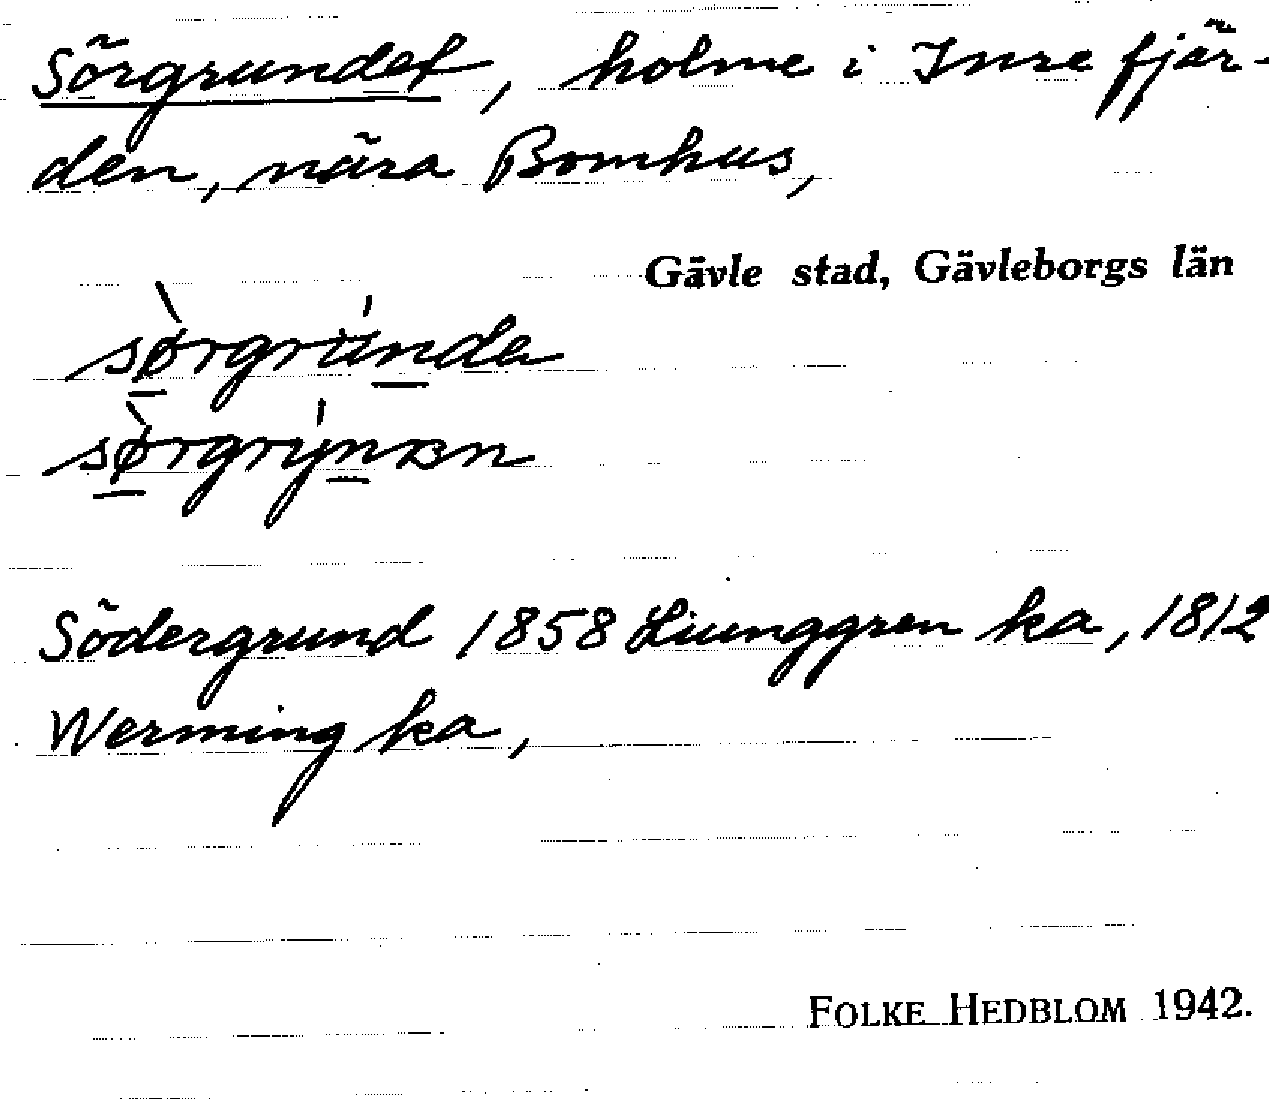 Sörgrundet, holme i Inre fjär-
den, nära Bomhus,
Gävle stad, Gävleborgs län
sø̀rgrúnda
Södergrund 1858 Liunggren ka, 1812
Werming ka,
FOLKE HEDBLOM 1942.